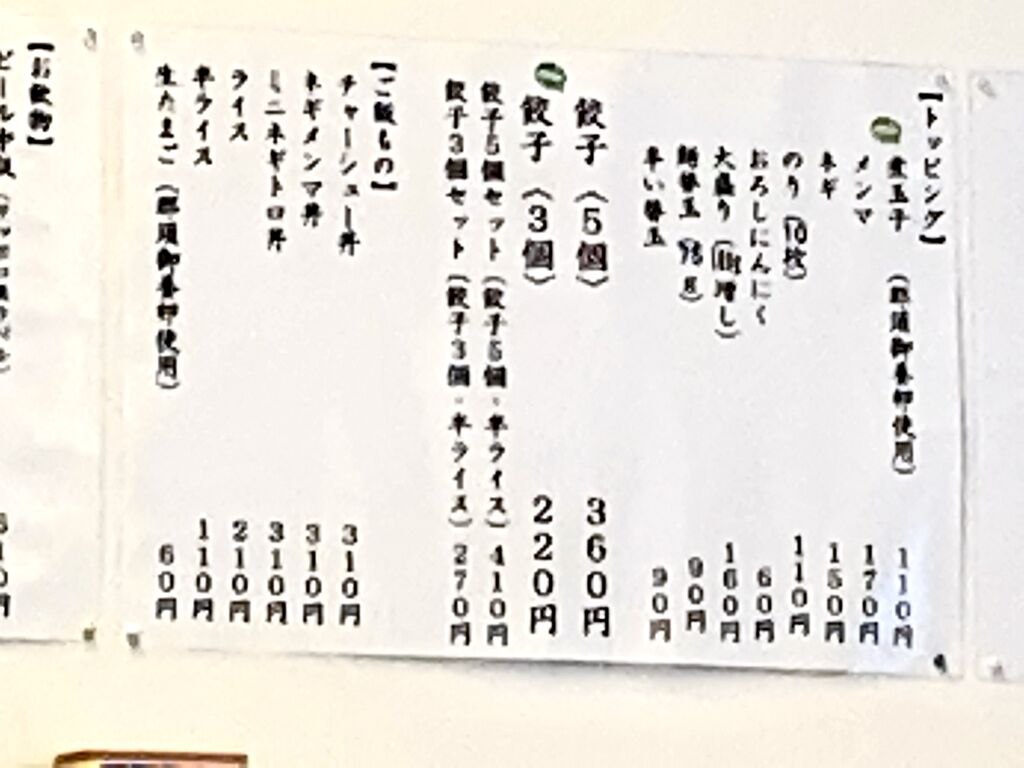 【トッピング】
煮玉子（那須御養卵使用） 110円
メンマ 170円
ネギ 150円
のり（10枚） 110円
おろしにんにく 60円
大盛り 増し） 160円
替玉 90円
辛い替玉 90円
餃子（5個） 360円
餃子（3個） 220円
餃子5個セット（餃子5個・半ライス）410円
餃子3個セット（餃子3個・半ライス）270円
【ご飯もの】
チャーシュー丼 310円
ネギメンマ丼 310円
ミニネギトロ丼 310円
ライス 210円
半ライス 110円
生たまご（那須御養卵使用） 60円
【お飲物】
ビール中瓶